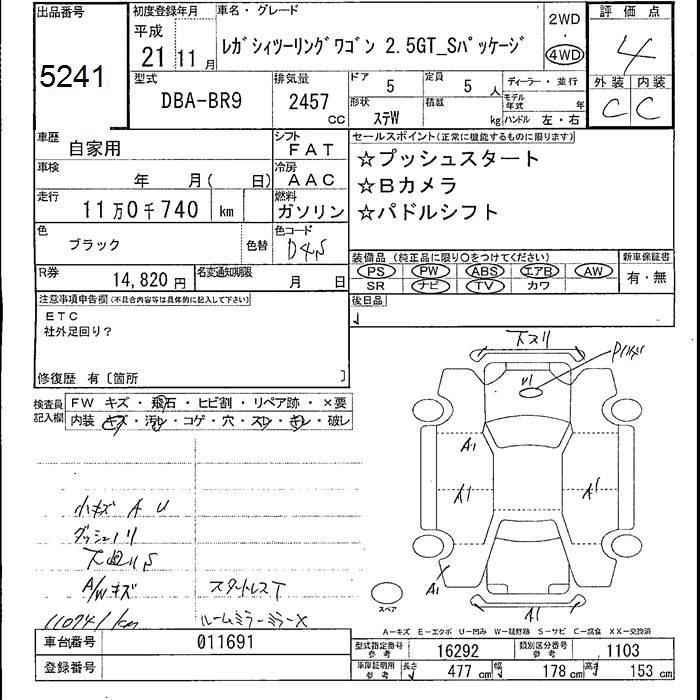 出品番号
5241
初度登録年月
平成
21 11月
車名・グレード
レガシィツーリングワゴン 2.5GT_Sパッケージ
2WD
・
4WD
評価点
4
外装 内装
C C
型式
DBA-BR9
排気量
2457
CC
ドア 5
定員 5 人
形状 ステW
積載 kg
ディーラー・並行
モデル年式 年
ハンドル 左・右
車歴
自家用
シフト
FAT
車検
年 月( 日)
冷房
AAC
走行
11万0千740 km
燃料
ガソリン
色
ブラック
色替
色コード
D4S
R券
14,820円
名変通知期限
月 日
セールスポイント(正常に機能するものに限ります)
☆プッシュスタート
☆Bカメラ
☆パドルシフト
装備品(純正品に限り○をつけてください)
PS PW ABS エアB AW
SR ナビ TV カワ
新車保証書
有・無
後日品
注意事項申告欄(不具合内容等は具体的に記入して下さい)
ETC
社外足回り?
修復歴 有〔箇所 〕
検査員記入欄
FW キズ・飛石・ヒビ割・リペア跡・×要
内装 キズ・汚れ・コゲ・穴・スレ・キレ・破レ
小キズ A U
ダッシュノリ
A/Wキズ
110741km
スタートレスT
ルームミラーミラーX
下スリ
A1
A1
A1
A1
A1
スペア
A-キズ E-エクボ U-凹み W-補修跡 S-サビ C-腐食 XX-交換済
車台番号
011691
登録番号
型式指定番号 参考
16292
類別区分番号 参考
1103
車庫証明用 参考
長さ 477 cm
幅 178 cm
高さ 153 cm